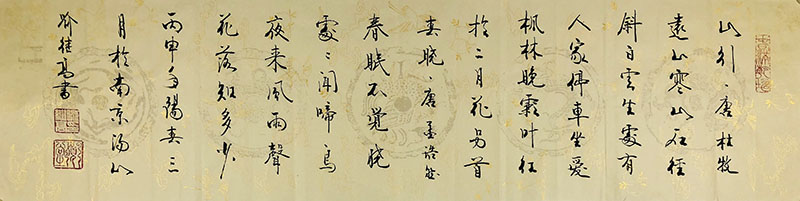 山行、唐杜牧
遠上寒山石徑
斜白雲生處有
人家停車坐愛
楓林晚霜叶红
於二月花另首
春晓、唐孟浩然
春眠不覺晓
處〻聞啼鳥
夜来風雨聲
花落知多少
丙申年陽春三
月於南京湯山
高書